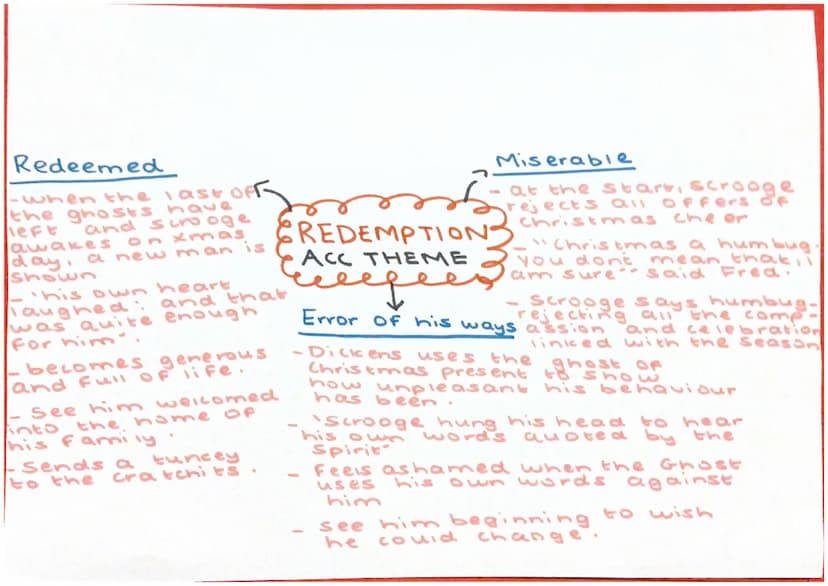 REDEMPTION
ACC THEME
Redeemed
-when the last of
the ghosts have
left and scrooge
awakes on xmas
day, a new man is
shown
- 'his own heart
laughed: and that
was quite enough
for him".
- becomes generous
and full of life.
- see him welcomed
into the home of
his family.
- Sends a turkey
to the cratchits.
Miserable
- at the start, scrooge
rejects all offers of
christmas cheer
- "Christmas a humbug,
you dont mean that, i
am sure" said Fred.
- scrooge says humbug-
rejecting all the comp-
assion and celebration
linked with the season
Error of his ways
- Dickens uses the ghost of
christmas present to show
how unpleasant his behaviour
has been.
- 'Scrooge hung his head to hear
his own words quoted by the
spirit"
- Feels ashamed when the Ghost
uses his own words against
him
- see him beginning to wish
he could change.